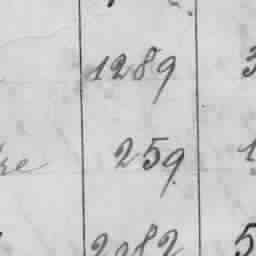 1289 3
re 259 1
2082 5